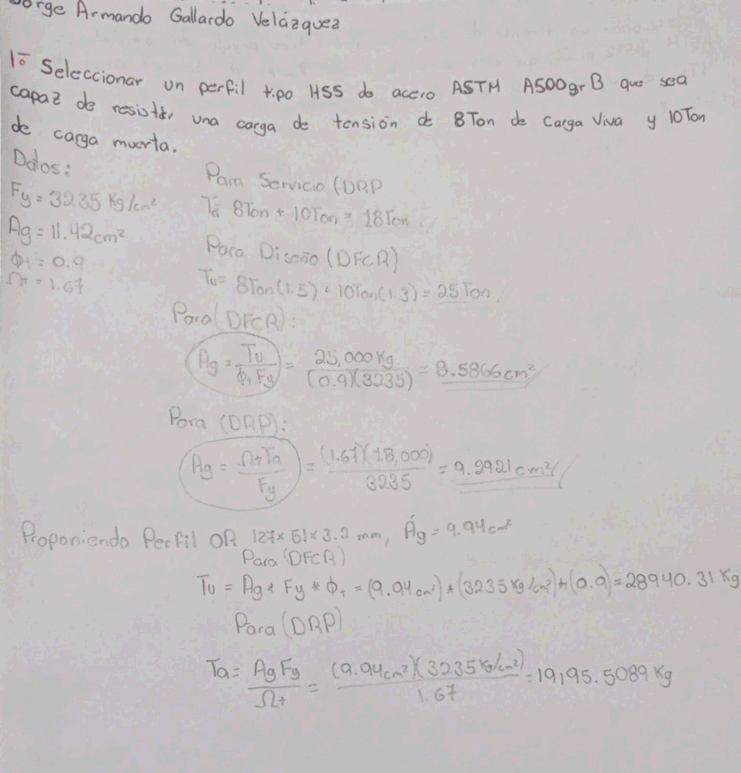 Jorge Armando Gallardo Velázquez
1º Seleccionar un perfil tipo HSS de acero ASTM A500grB que sea
capaz de resistir una carga de tensión de 8Ton de Carga Viva y 10Ton
de carga muerta.
Datos:
Fy = 3235 Kg/cm²
Ag = 11.42cm²
Φt = 0.9
Ωt = 1.67
Para Servicio (DRP
Ta = 8Ton + 10Ton = 18Ton.
Para Diseño (DFCR)
Tu = 8Ton(1.5) + 10Ton(1.3) = 25Ton.
Para (DFCR):
Ag = Tu / Φt Fy = 25,000Kg / (0.9)(3235) = 8.5866cm²
Para (DRP):
Ag = Ωt Ta / Fy = (1.67)(18,000) / 3235 = 9.2921cm²
Proponiendo Perfil OR 127 x 51 x 3.2 mm, Ag = 9.94cm²
Para (DFCR)
Tu = Ag * Fy * Φt = (9.94cm²) * (3235Kg/cm²) * (0.9) = 28940.31 Kg
Para (DRP)
Ta = Ag Fy / Ωt = (9.94cm²)(3235Kg/cm²) / 1.67 = 19,195.5089 Kg